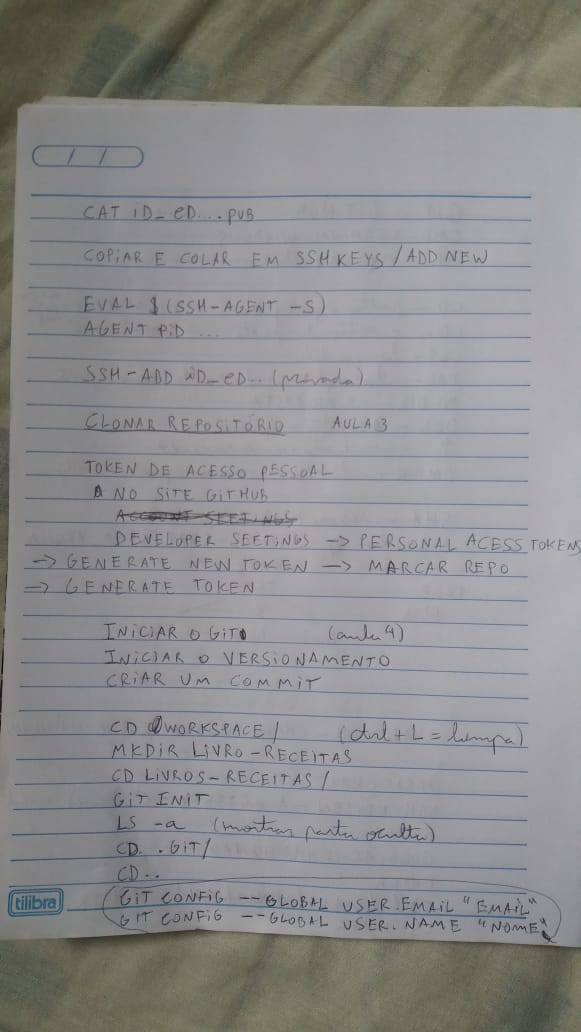 CAT ID_ED....PUB
COPIAR E COLAR EM SSH KEYS / ADD NEW
EVAL $(SSH-AGENT -S)
AGENT PID ...
SSH-ADD ID_ED.. (privada)
CLONAR REPOSITÓRIO AULA 3
TOKEN DE ACESSO PESSOAL
NO SITE GITHUB
ACCOUNT SEETINGS
DEVELOPER SEETINGS → PERSONAL ACESS TOKENS
→ GENERATE NEW TOKEN → MARCAR REPO
→ GENERATE TOKEN
INICIAR O GIT (aula 4)
INICIAR O VERSIONAMENTO
CRIAR UM COMMIT
CD WORKSPACE/ (ctrl + L = limpa)
MKDIR LIVRO-RECEITAS
CD LIVROS-RECEITAS/
GIT INIT
LS -a (mostrar pasta oculta)
CD .GIT/
CD..
GIT CONFIG --GLOBAL USER.EMAIL "EMAIL"
GIT CONFIG --GLOBAL USER.NAME "NOME"
tilibra